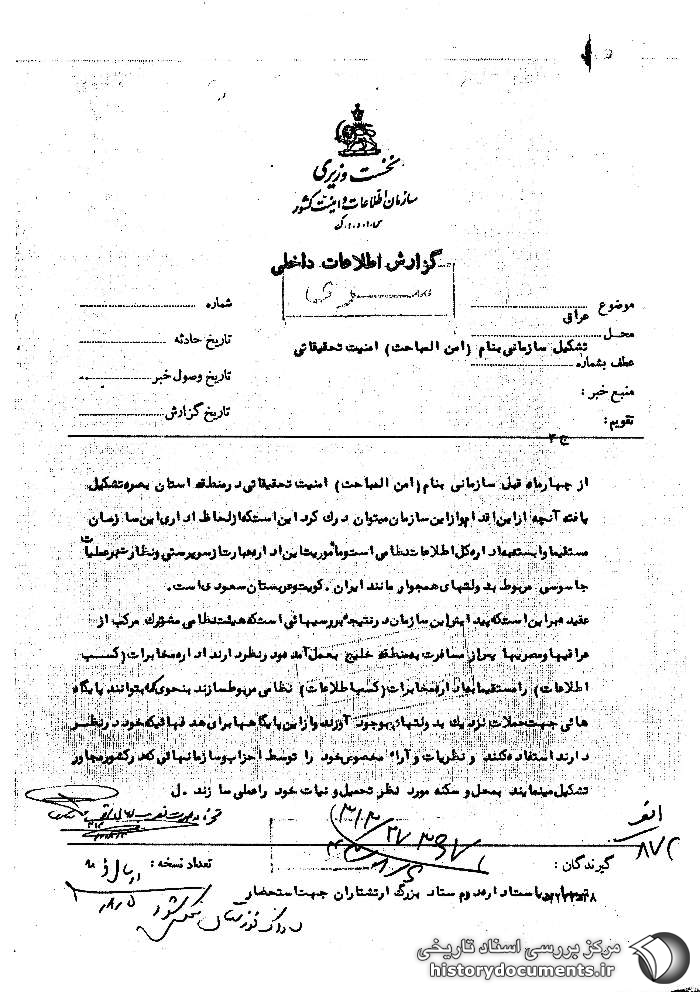 نخست وزیری
سازمان اطلاعات و امنیت کشور
س.ا.و.ا.ک
گزارش اطلاعات داخلی
موضوع
عراق
شماره
محل
تاریخ حادثه
تشکیل سازمانی بنام (امن المباحث) امنیت تحقیقاتی
عطف بشماره
تاریخ وصول خبر
منبع خبر :
تاریخ گزارش
تقویم :
ج ۲
از چهارماه قبل سازمانی بنام (امن المباحث) امنیت تحقیقاتی درمنطقه استان بصره تشکیل
یافته آنچه از این اقدام و از این سازمان میتوان درک کرد این است که از لحاظ اداری این سازمان
مستقیما وابسته به اداره کل اطلاعات نظامی است و مأموریت این اداره عبارت از سرپرستی و نظارت بر عملیات
جاسوسی مربوط بدولتهای همجوار مانند ایران . کویت و عربستان سعودی است .
عقیده بر این است که پیدایش این سازمان در نتیجه بررسیهائی است که هیئت نظامی مشترک مرکب از
عراقیها و مصریها پس از مسافرت به منطقه خلیج بعمل آمده و در نظر دارند اداره مخابرات (کسب
اطلاعات) را مستقیما به اداره مخابرات (کسب اطلاعات) نظامی مربوط سازند بنحوی که بتوانند پایگاه
هائی جهت حملات نزدیک بدولتها بوجود آورند و از این پایگاهها برای هدفهائیکه خود در نظر
دارند استفاده کنند و نظریات و آراء مخصوص خود را توسط احزاب و سازمانهائی که در کشور مجاور
تشکیل مینمایند بمحل و سکنه مورد نظر تحمیل و نیات خود را عملی سازند . ل
گیرندگان :
تعداد نسخه :
ستاد اداره دوم ستاد بزرگ ارتشتاران جهت استحضار
مرکز بررسی اسناد تاریخی
historydocuments.ir